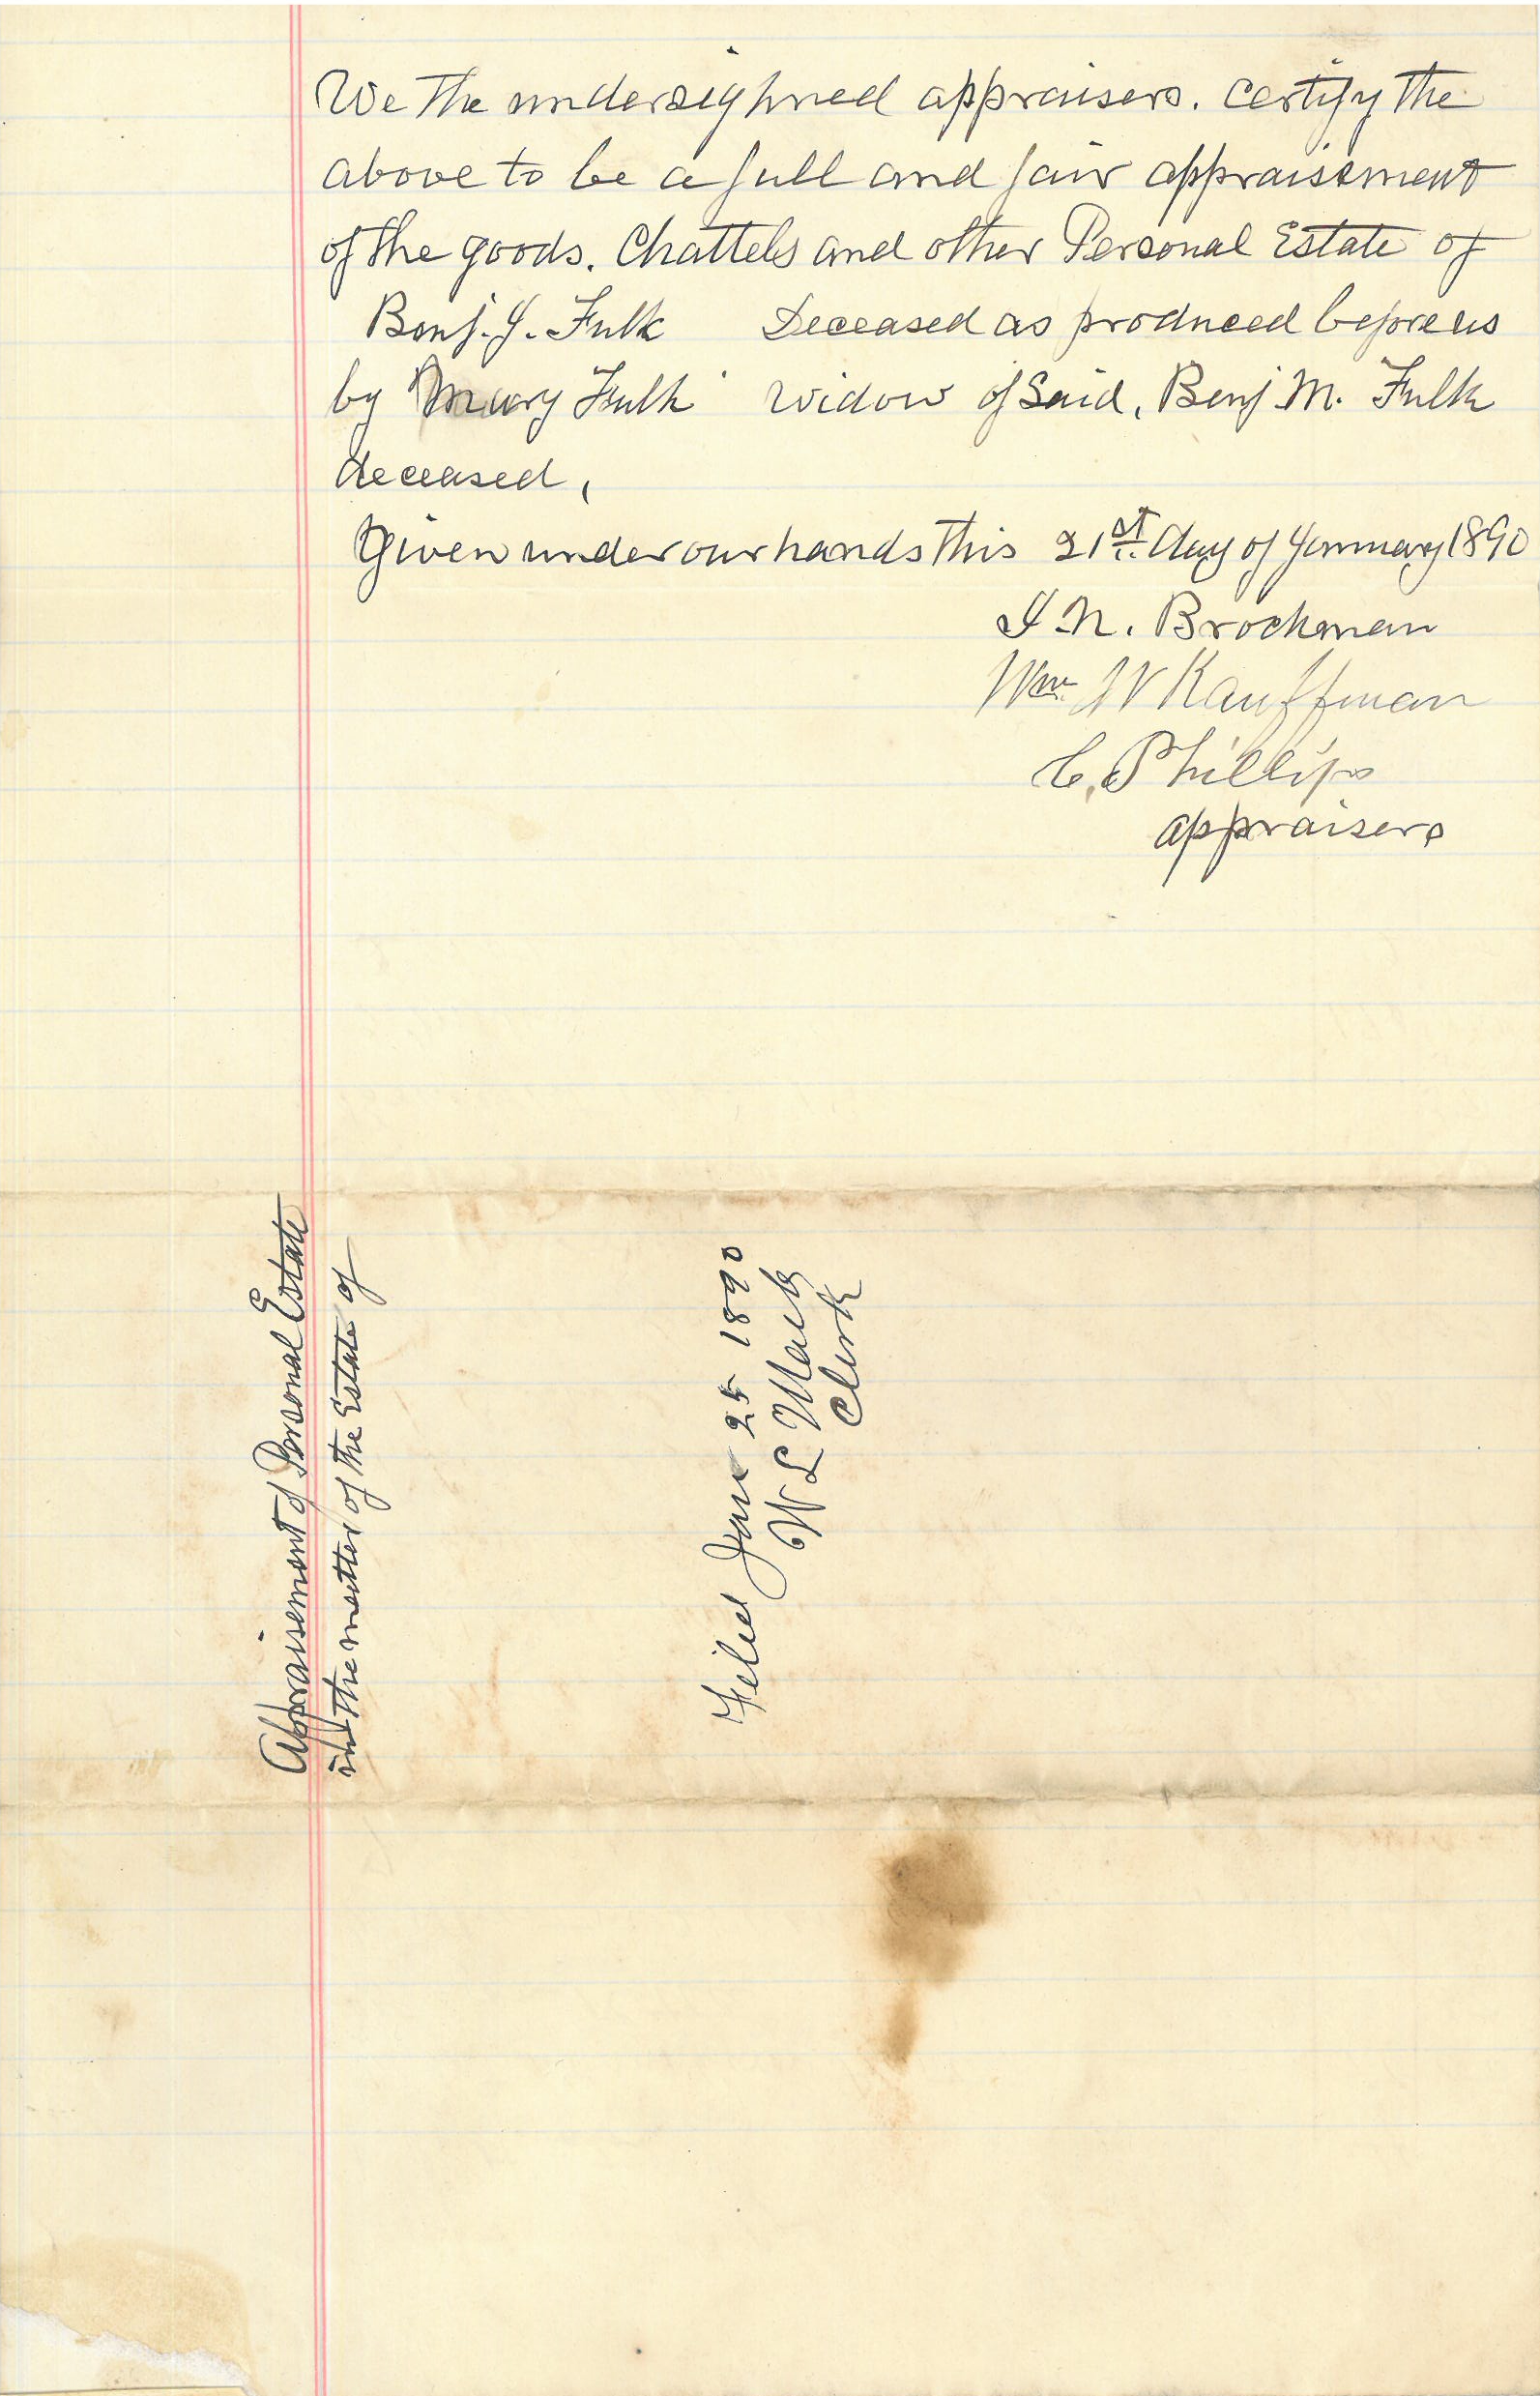 We the undersighned appraisers. Certify the
above to be a full and fair appraisement
of the goods. Chattels and other Personal Estate of
Benj. J. Fulk Deceased as produced before us
by Mary Fulk widow of Said, Benj M. Fulk
deceased,
Given under our hands this 21st day of January 1890
I N. Brockman
Wm W Kauffman
C. Phillips
appraisers
Appraisement of Personal Estate
in the matter of the Estate of
Filed Jan 25 1890
W L Mack
Clerk